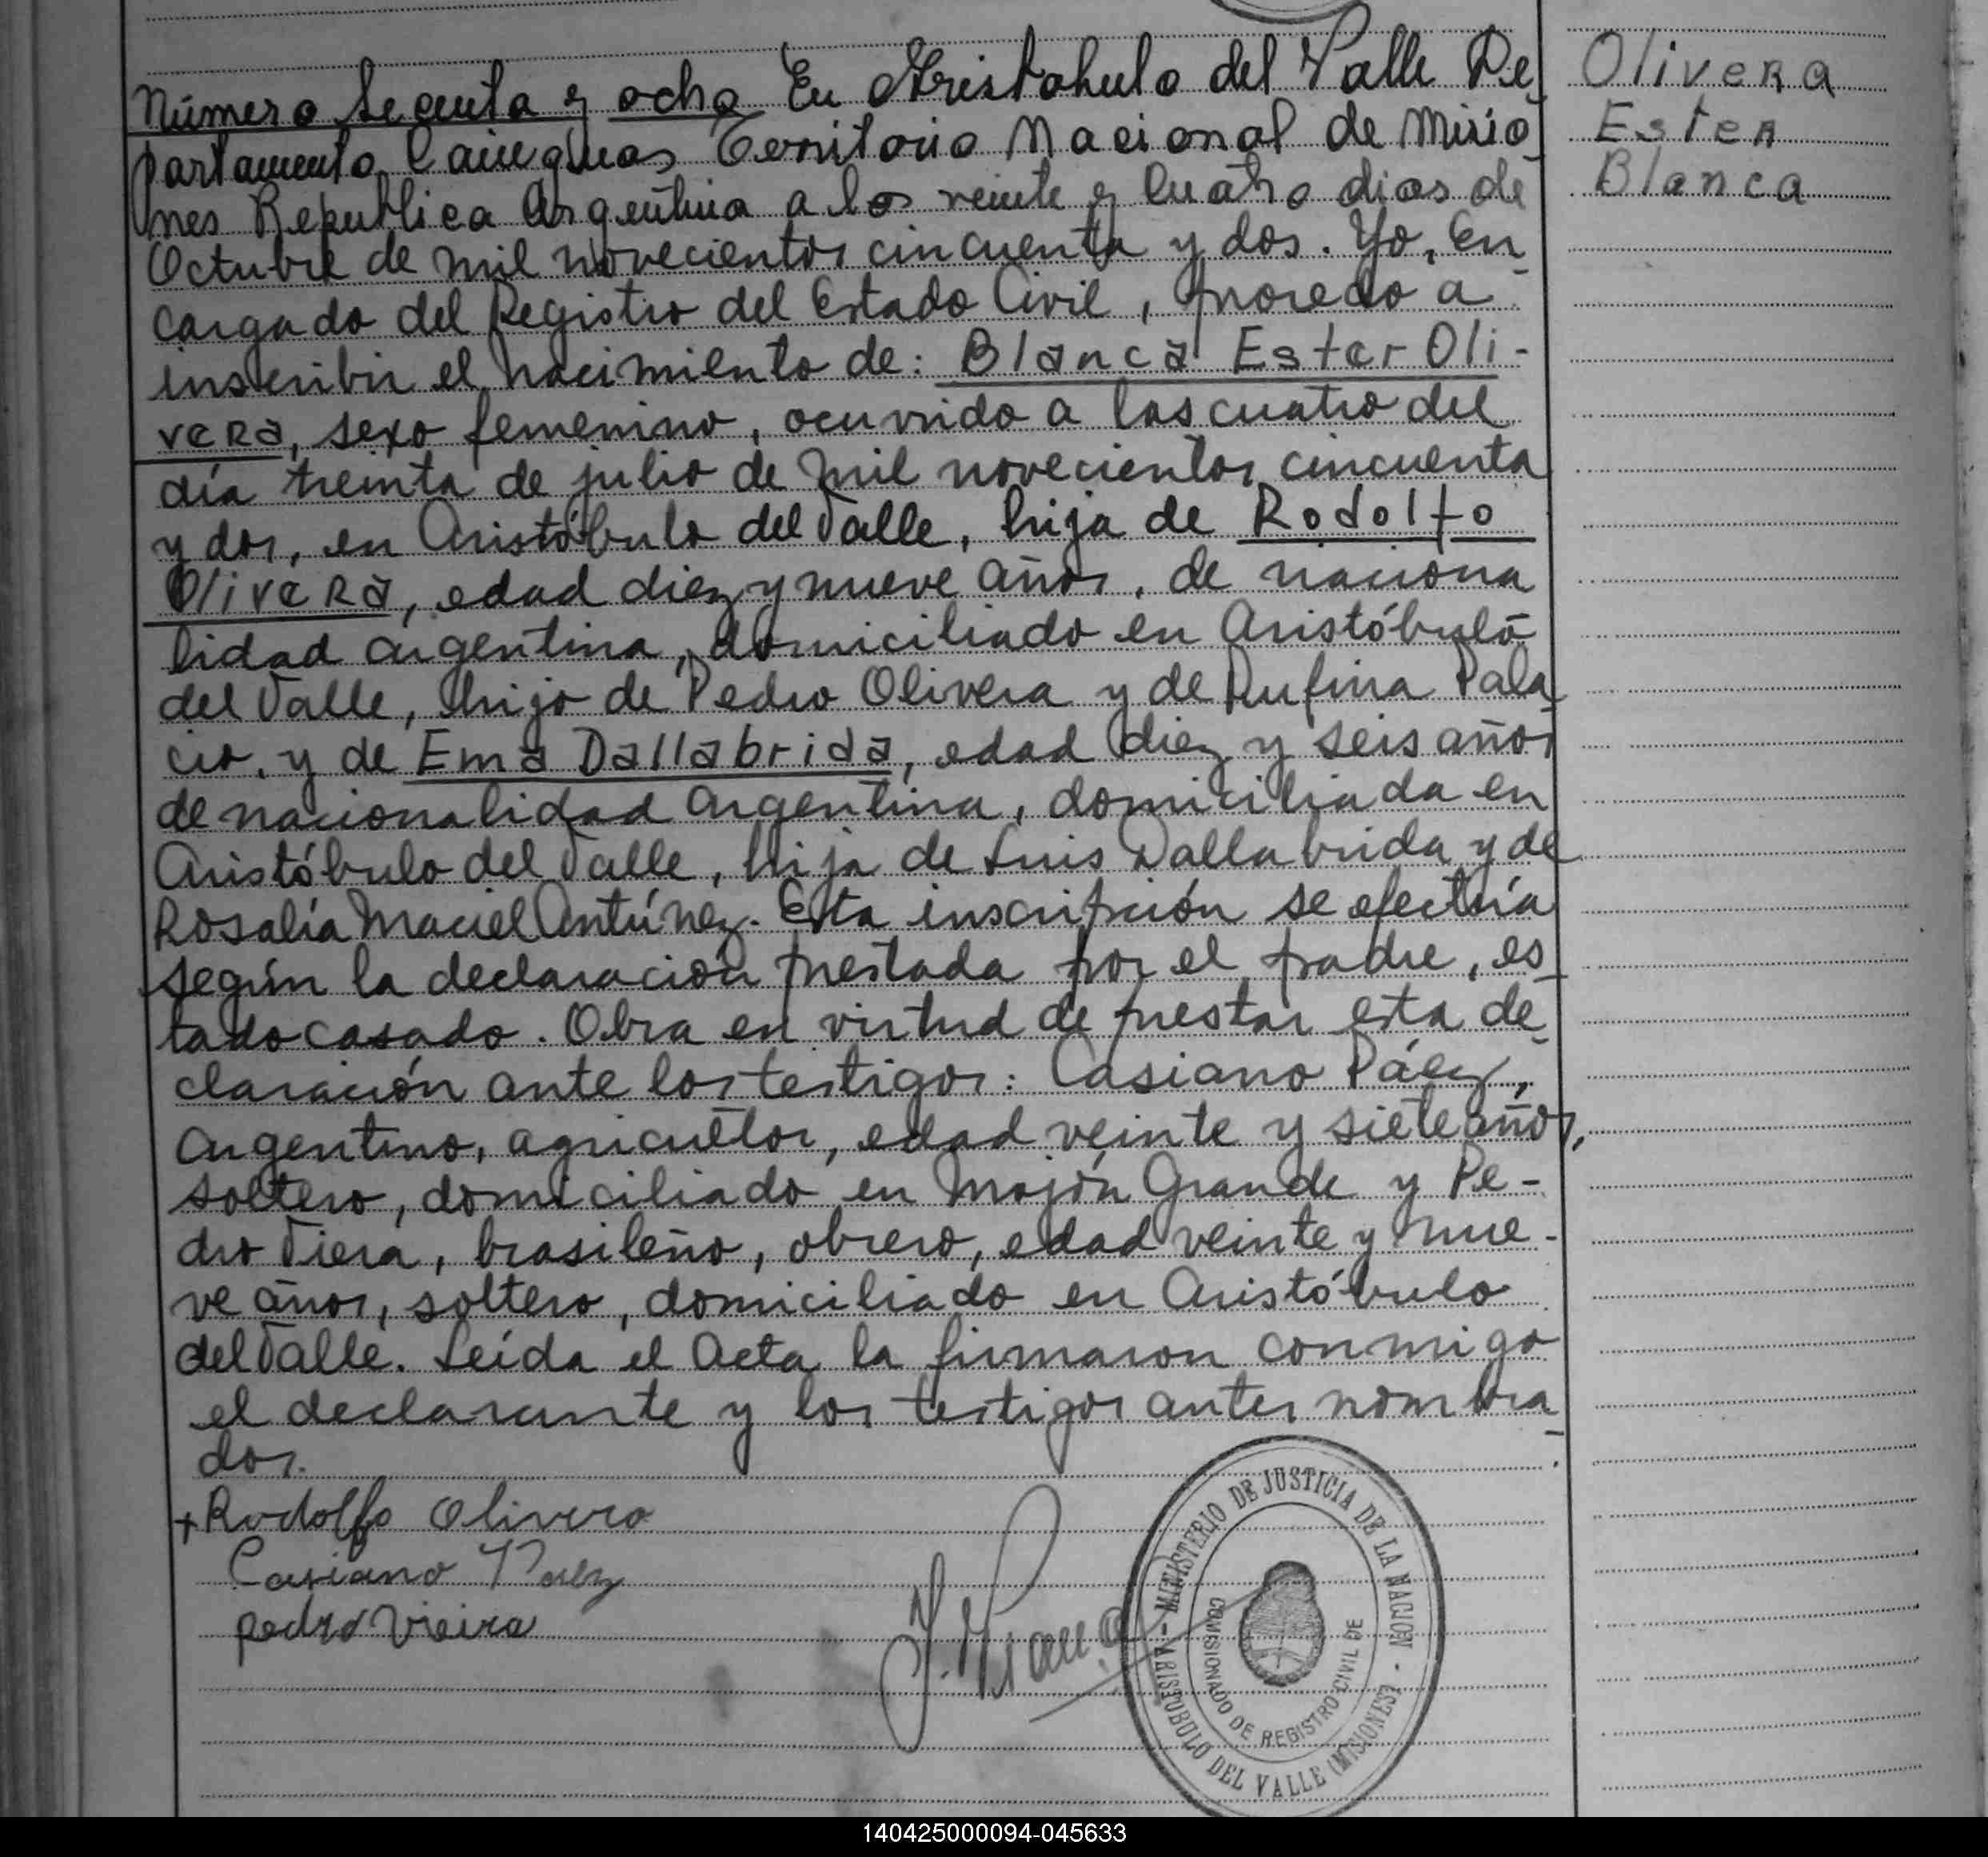 Número Secenta y ocho En Aristobulo del Valle De
partamento Cainguas Territorio Nacional de Misio
nes Republica Argentina a los veinte y cuatro dias de
Octubre de mil novecientos cincuenta y dos. Yo, En
cargado del Registro del Estado Civil, procedo a
inscribir el nacimiento de: Blanca Ester Oli-
vera, sexo femenino, ocurrido a las cuatro del
día treinta de julio de mil novecientos cincuenta
y dos, en Aristóbulo del Valle, hija de Rodolfo
Olivera, edad diez y nueve años, de naciona
lidad argentina, domiciliado en Aristóbulo
del Valle, hijo de Pedro Olivera y de Rufina Pala
cio, y de Ema Dallabrida, edad diez y seis años
de nacionalidad argentina, domiciliada en
Aristóbulo del Valle, hija de Luis Dallabrida y de
Rosalía Maciel Antúnez. Esta inscripción se efectúa
según la declaración prestada por el padre, es
tado casado. Obra en virtud de prestar esta de
claración ante los testigos: Casiano Páez,
Argentino, agricultor, edad veinte y siete años,
soltero, domiciliado en Mojón Grande y Pe-
dro Viera, brasileño, obrero, edad veinte y nue-
ve años, soltero, domiciliado en Aristóbulo
del Valle. Leída el Acta la firmaron conmigo
el declarante y los testigos antes nombra
dos.
+ Rodolfo Olivera
Casiano Paez
pedro Vieira
Olivera
Ester
Blanca
MINISTERIO DE JUSTICIA DE LA NACION
ARISTOBULO DEL VALLE (MISIONES)
COMISIONADO DE REGISTRO CIVIL DE
140425000094-045633